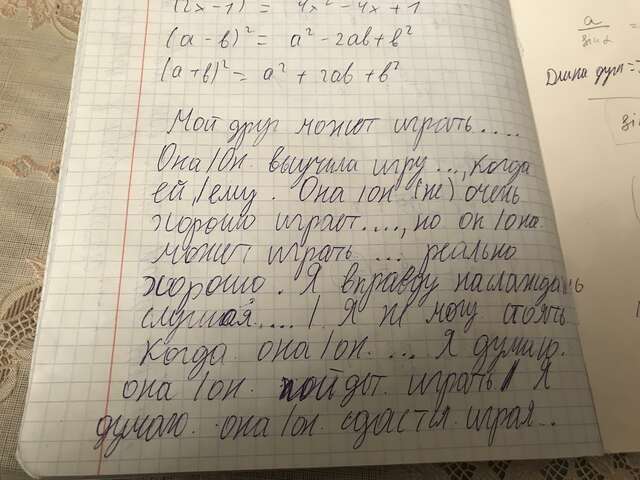 (2x-1) = 4x² - 4x + 1
(a - b)² = a² - 2ab + b²
(a + b)² = a² + 2ab + b²
Мой друг может играть....
Она/Он. выучила игру ..., когда
ей,/ему. Она/он (не) очень
хорошо играет...., но он/она
может играть ... реально
хорошо. Я вправду наслаждаюсь
слушая..../ Я не могу стоять
Когда она/он. ... Я думаю.
она/он. пойдет играть/ Я
думаю. она/он. сдастся играя..
a
sin α
=
Длина дуги =
sin